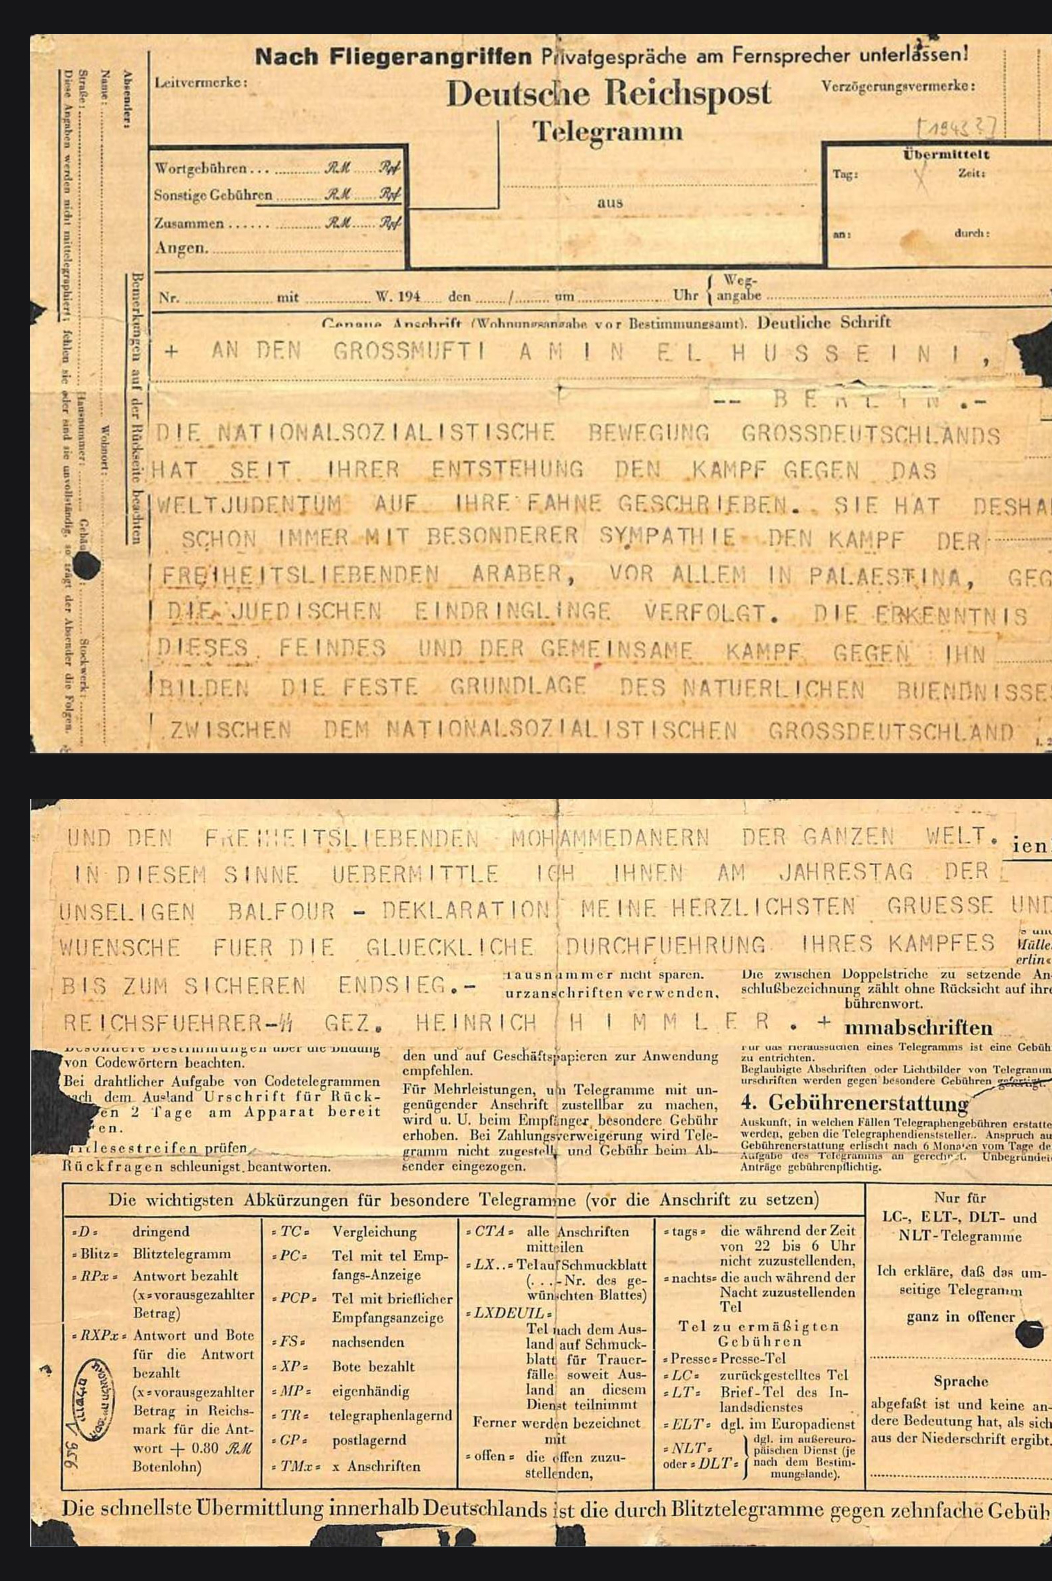 Nach Fliegerangriffen Privatgespräche am Fernsprecher unterlassen!
Leitvermerke:
Deutsche Reichspost
Verzögerungsvermerke:
Telegramm
[1943?]
Absender:
Name:
Wohnort:
Straße:
Hausnummer:
Stockwerk:
Diese Angaben werden nicht mittelegraphiert; fehlen sie oder sind sie unvollständig, so trägt der Absender die Folgen.
Bemerkungen auf der Rückseite beachten
Wortgebühren ... RM Rpf
Sonstige Gebühren RM Rpf
Zusammen ...... RM Rpf
Angen.
aus
Übermittelt
Tag: Zeit:
an: durch:
Nr. mit W. 194 den / um Uhr { Weg-
angabe
Genaue Anschrift (Wohnungsangabe vor Bestimmungsamt). Deutliche Schrift
+ AN DEN GROSSMUFTI A M I N E L H U S S E I N I ,
-- B E R L I N .-
DIE NATIONALSOZIALISTISCHE BEWEGUNG GROSSDEUTSCHLANDS
HAT SEIT IHRER ENTSTEHUNG DEN KAMPF GEGEN DAS
WELTJUDENTUM AUF IHRE FAHNE GESCHRIEBEN. SIE HAT DESHA
SCHON IMMER MIT BESONDERER SYMPATHIE DEN KAMPF DER
FREIHEITSLIEBENDEN ARABER, VOR ALLEM IN PALAESTINA, GEG
DIE JUEDISCHEN EINDRINGLINGE VERFOLGT. DIE ERKENNTNIS
DIESES FEINDES UND DER GEMEINSAME KAMPF GEGEN IHN
BILDEN DIE FESTE GRUNDLAGE DES NATUERLICHEN BUENDNISSE
ZWISCHEN DEM NATIONALSOZIALISTISCHEN GROSSDEUTSCHLAND
UND DEN FREIHEITSLIEBENDEN MOHAMMEDANERN DER GANZEN WELT.
ien
IN DIESEM SINNE UEBERMITTLE ICH IHNEN AM JAHRESTAG DER
UNSELIGEN BALFOUR - DEKLARATION MEINE HERZLICHSTEN GRUESSE UND
WUENSCHE FUER DIE GLUECKLICHE DURCHFUEHRUNG IHRES KAMPFES
BIS ZUM SICHEREN ENDSIEG.-
REICHSFUEHRER-SS GEZ. HEINRICH H I M M L E R . +
ausnummer nicht sparen.
urzanschriften verwenden,
Die zwischen Doppelstriche zu setzende An-
schlußbezeichnung zählt ohne Rücksicht auf ihre
bührenwort.
mmabschriften
Besondere Bestimmungen über die Bildung
von Codewörtern beachten.
Bei drahtlicher Aufgabe von Codetelegrammen
nach dem Ausland Urschrift für Rück-
en 2 Tage am Apparat bereit
en.
lesestreifen prüfen
Rückfragen schleunigst beantworten.
den und auf Geschäftspapieren zur Anwendung
empfehlen.
Für Mehrleistungen, um Telegramme mit un-
genügender Anschrift zustellbar zu machen,
wird u. U. beim Empfänger besondere Gebühr
erhoben. Bei Zahlungsverweigerung wird Tele-
gramm nicht zugestellt und Gebühr beim Ab-
sender eingezogen.
Für das Heraussuchen eines Telegramms ist eine Gebüh
zu entrichten.
Beglaubigte Abschriften oder Lichtbilder von Telegramm
urschriften werden gegen besondere Gebühren gefertigt.
4. Gebührenerstattung
Auskunft, in welchen Fällen Telegraphengebühren erstatte
werden, geben die Telegraphendienststellen. Anspruch au
Gebührenerstattung erlischt nach 6 Monaten vom Tage de
Aufgabe des Telegramms an gerechnet. Unbegründet
Anträge gebührenpflichtig.
Die wichtigsten Abkürzungen für besondere Telegramme (vor die Anschrift zu setzen)
=D= dringend
=Blitz= Blitztelegramm
=RPx= Antwort bezahlt
(x=vorausgezahlter
Betrag)
=RXPx= Antwort und Bote
für die Antwort
bezahlt
(x=vorausgezahlter
Betrag in Reichs-
mark für die Ant-
wort + 0.80 RM
Botenlohn)
=TC= Vergleichung
=PC= Tel mit tel Emp-
fangs-Anzeige
=PCP= Tel mit brieflicher
Empfangsanzeige
=FS= nachsenden
=XP= Bote bezahlt
=MP= eigenhändig
=TR= telegraphenlagernd
=GP= postlagernd
=TMx= x Anschriften
=CTA= alle Anschriften
mitteilen
=LX..= Tel auf Schmuckblatt
(. . .-Nr. des ge-
wünschten Blattes)
=LXDEUIL=
Tel nach dem Aus-
land auf Schmuck-
blatt für Trauer-
fälle, soweit Aus-
land an diesem
Dienst teilnimmt
Ferner werden bezeichnet
mit
=offen= die offen zuzu-
stellenden,
=tags= die während der Zeit
von 22 bis 6 Uhr
nicht zuzustellenden,
=nachts= die auch während der
Nacht zuzustellenden
Tel
Tel zu ermäßigten
Gebühren
=Presse= Presse-Tel
=LC= zurückgestelltes Tel
=LT= Brief-Tel des In-
landsdienstes
=ELT= dgl. im Europadienst
=NLT=
oder =DLT= } dgl. im außereuro-
päischen Dienst (je
nach dem Bestim-
mungslande).
Nur für
LC-, ELT-, DLT- und
NLT-Telegramme
Ich erkläre, daß das um-
seitige Telegramm
ganz in offener
Sprache
abgefaßt ist und keine an-
dere Bedeutung hat, als sich
aus der Niederschrift ergibt.
956
Die schnellste Übermittlung innerhalb Deutschlands ist die durch Blitztelegramme gegen zehnfache Gebüh